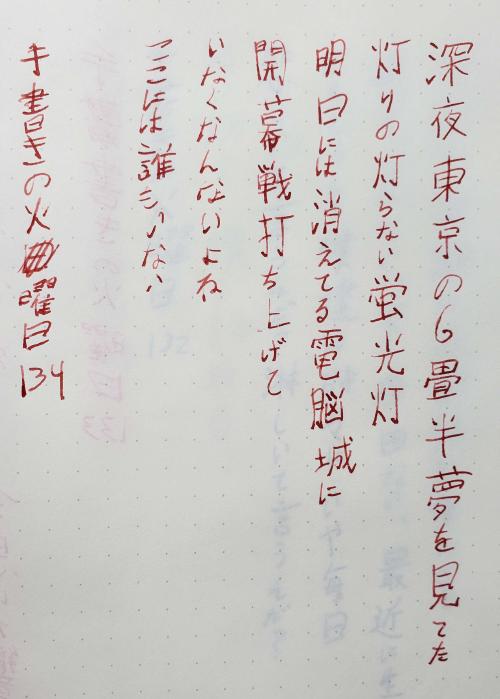 深夜東京の6畳半夢を見てた
灯りの灯らない蛍光灯
明日には消えてる電脳城に
開幕戦打ち上げて
いなくなんないよね
ここには誰もいない
手書きの火曜日134